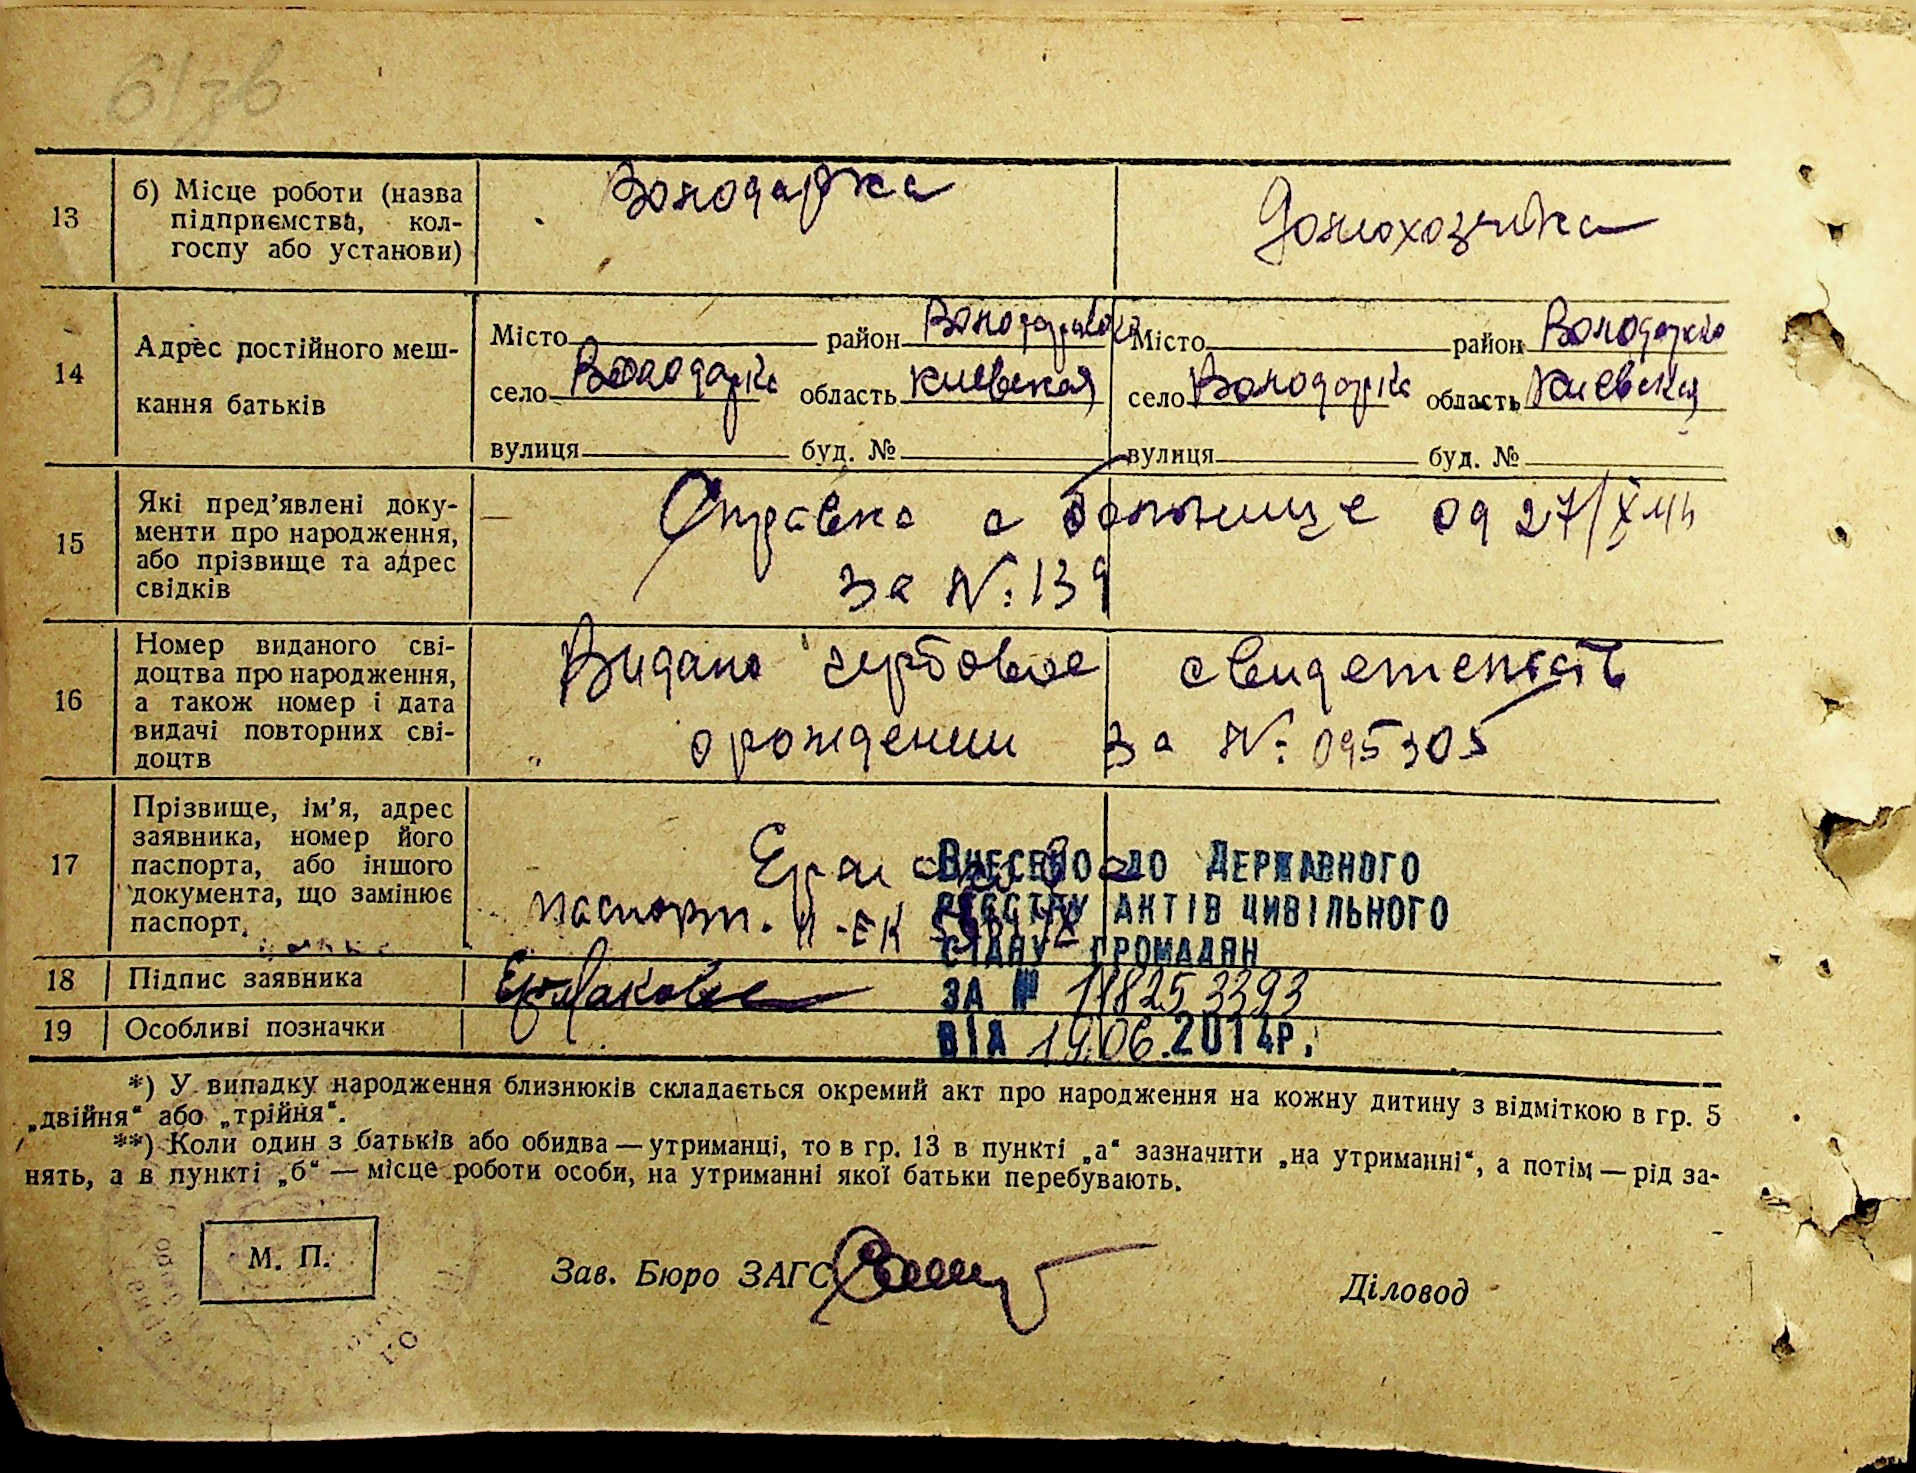 61зв
13
б) Місце роботи (назва
підприємства, кол-
госпу або установи)
Володарка
Домохозяйка
14
Адрес постійного меш-
кання батьків
Місто район Володарский
село Володарка область Киевская
вулиця буд. №
Місто район Володарско
село Володарка область Киевская
вулиця буд. №
15
Які пред’явлені доку-
менти про народження,
або прізвище та адрес
свідків
Справка с больнице од 27/X
за №: 139
16
Номер виданого сві-
доцтва про народження,
а також номер і дата
видачі повторних сві-
доцтв
Видано гербовое свидетельств
о рождении за №: 095305
17
Прізвище, ім’я, адрес
заявника, номер його
паспорта, або іншого
документа, що замінює
паспорт.
паспорт. II-ЕК
Внесено до Державного
реєстру актів цивільного
стану громадян
за № 11825 3393
від 19.06.2014р.
18
Підпис заявника
19
Особливі позначки
*) У випадку народження близнюків складається окремий акт про народження на кожну дитину з відміткою в гр. 5
„двійня“ або „трійня“.
**) Коли один з батьків або обидва — утриманці, то в гр. 13 в пункті „а“ зазначити „на утриманні“, а потім — рід за-
нять, а в пункті „б“ — місце роботи особи, на утриманні якої батьки перебувають.
М. П.
Зав. Бюро ЗАГС
Діловод